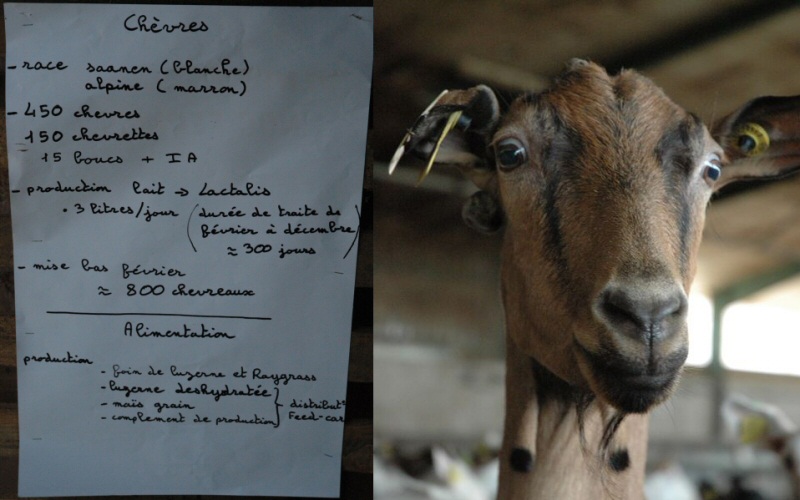 Chèvres
- race saanen (blanche)
alpine (marron)
- 450 chevres
150 chevrettes
15 boucs + IA
- production lait → Lactalis
• 3 litres/jour (durée de traite de
février à décembre
≈ 300 jours)
- mise bas février
≈ 800 chevreaux
Alimentation
production
- foin de luzerne et Raygrass
- luzerne deshydratée
- maïs grain
- complement de production
distribut°
Feed-car